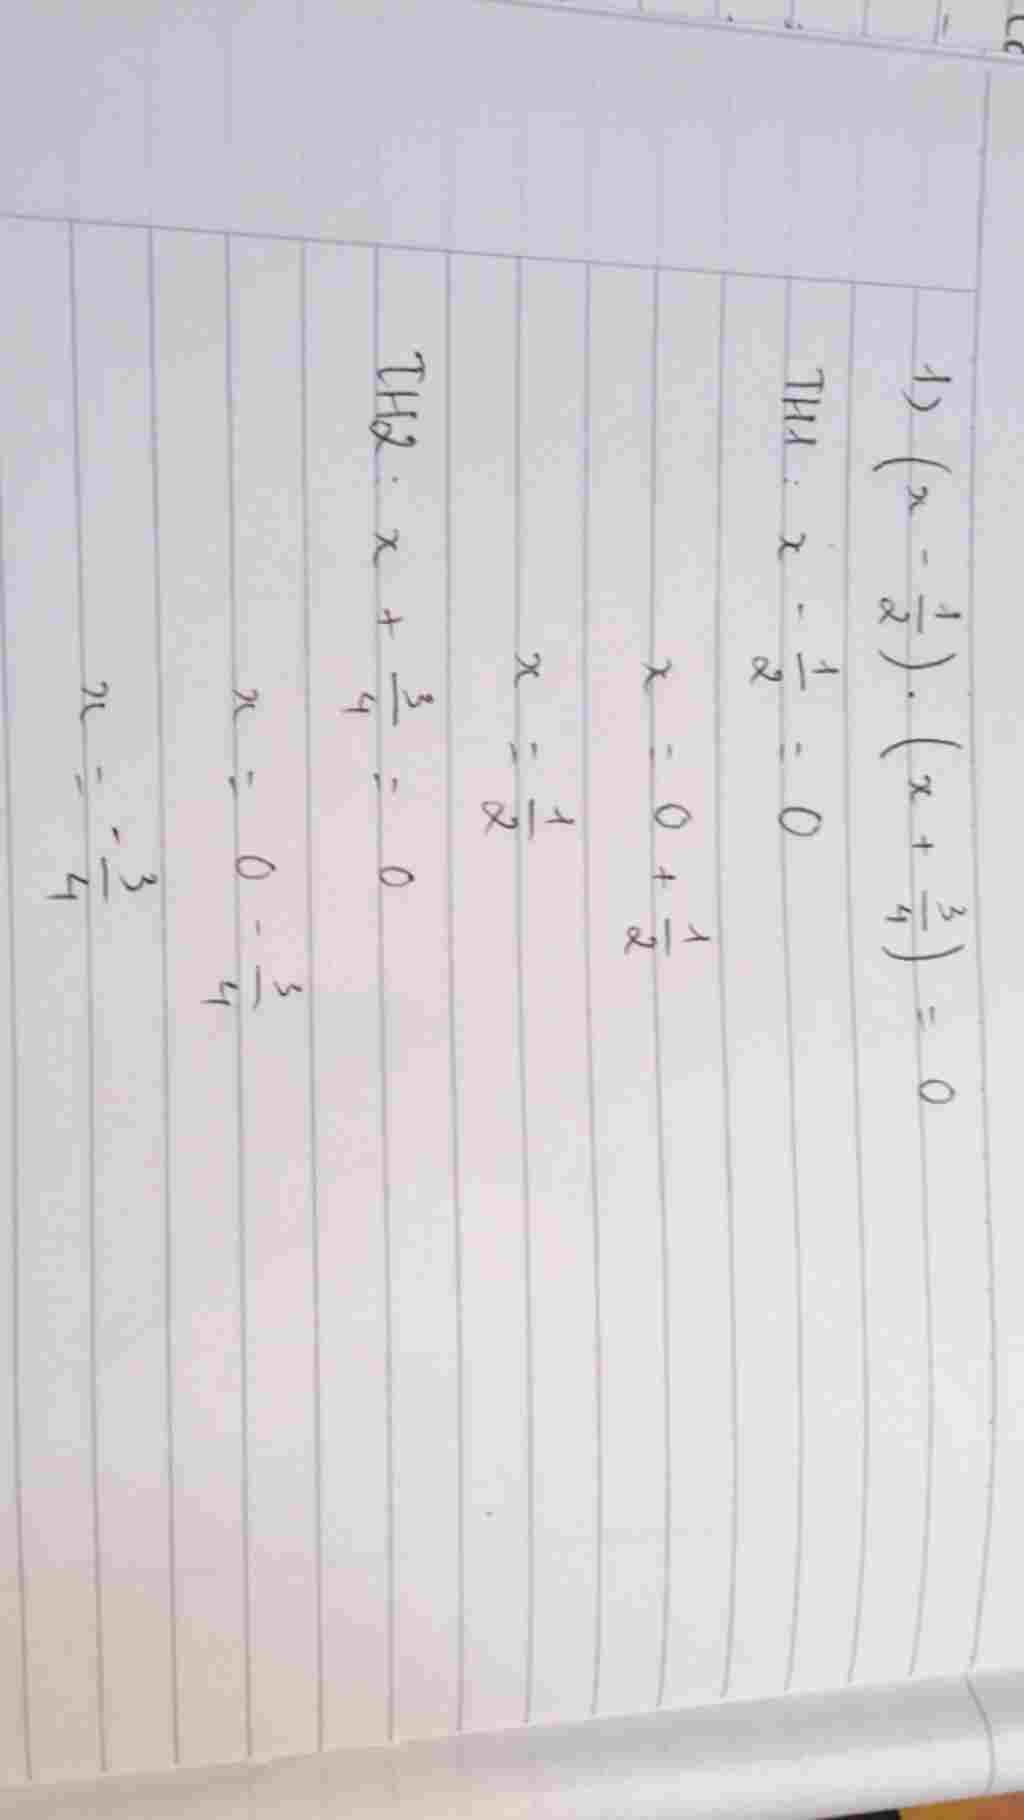 1) (x - 1/2) . (x + 3/4) = 0
TH1 : x - 1/2 = 0
x = 0 + 1/2
x = 1/2
TH2 : x + 3/4 = 0
x = 0 - 3/4
x = - 3/4